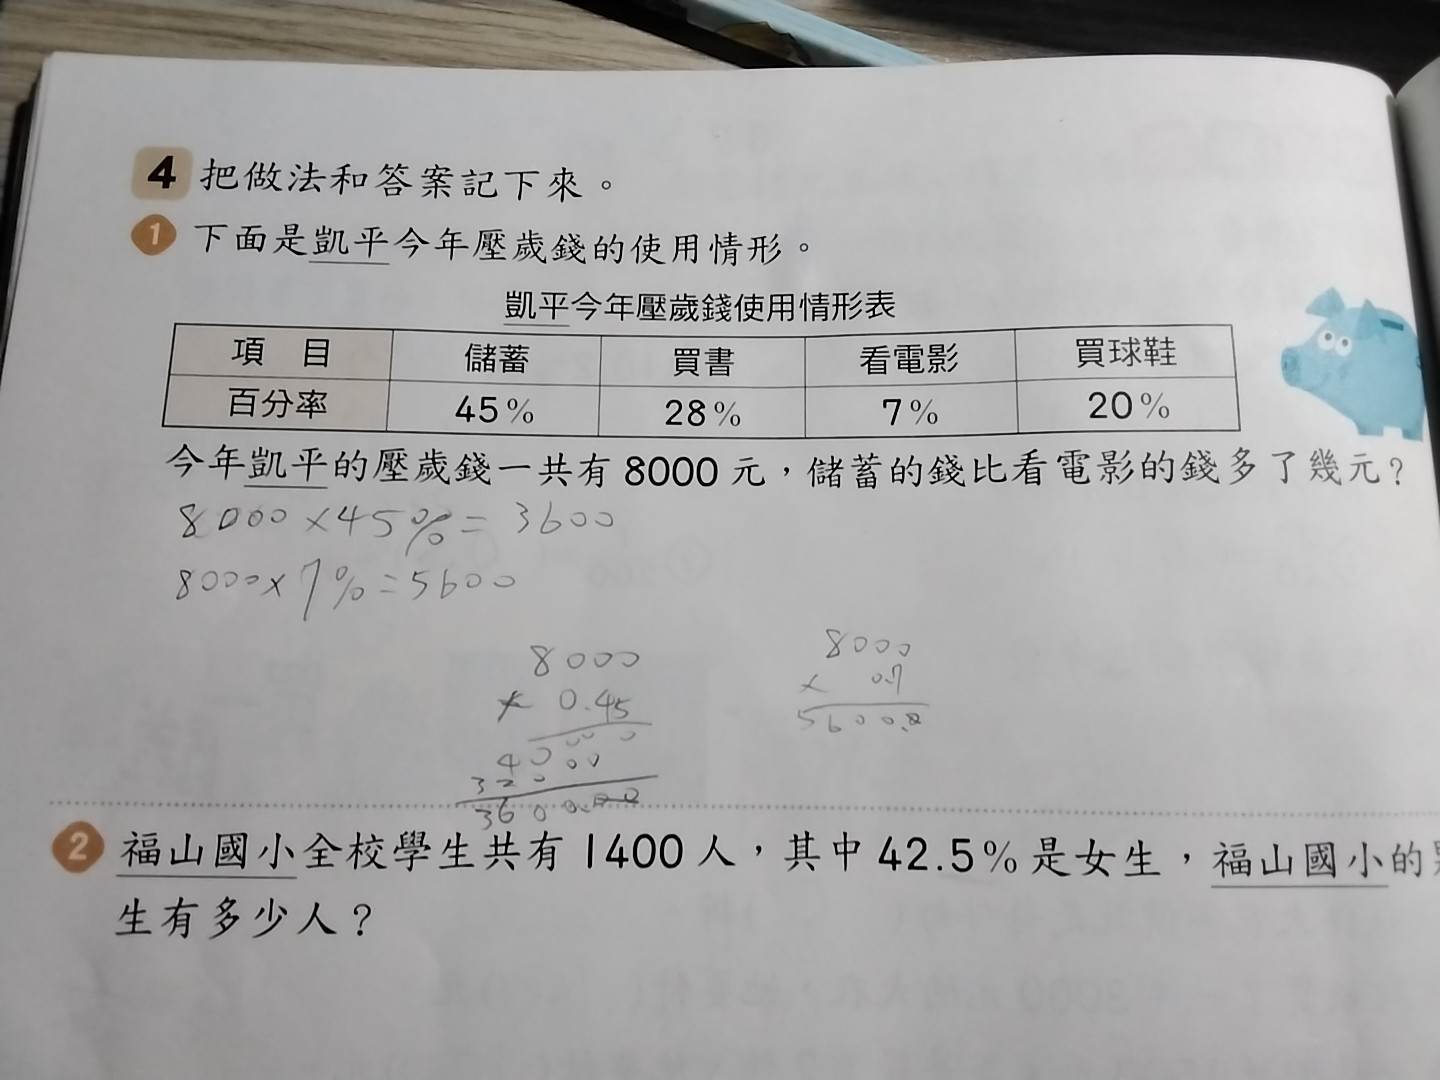 4 把做法和答案記下來。
1 下面是凱平今年壓歲錢的使用情形。
凱平今年壓歲錢使用情形表
項 目 儲蓄 買書 看電影 買球鞋
百分率 45% 28% 7% 20%
今年凱平的壓歲錢一共有8000元,儲蓄的錢比看電影的錢多了幾元?
8000×45%=3600
8000×7%=5600
8000 8000
× 0.45 × 0.7
40000 5600.0
32000
3600.00
2 福山國小全校學生共有1400人,其中42.5%是女生,福山國小的
生有多少人?